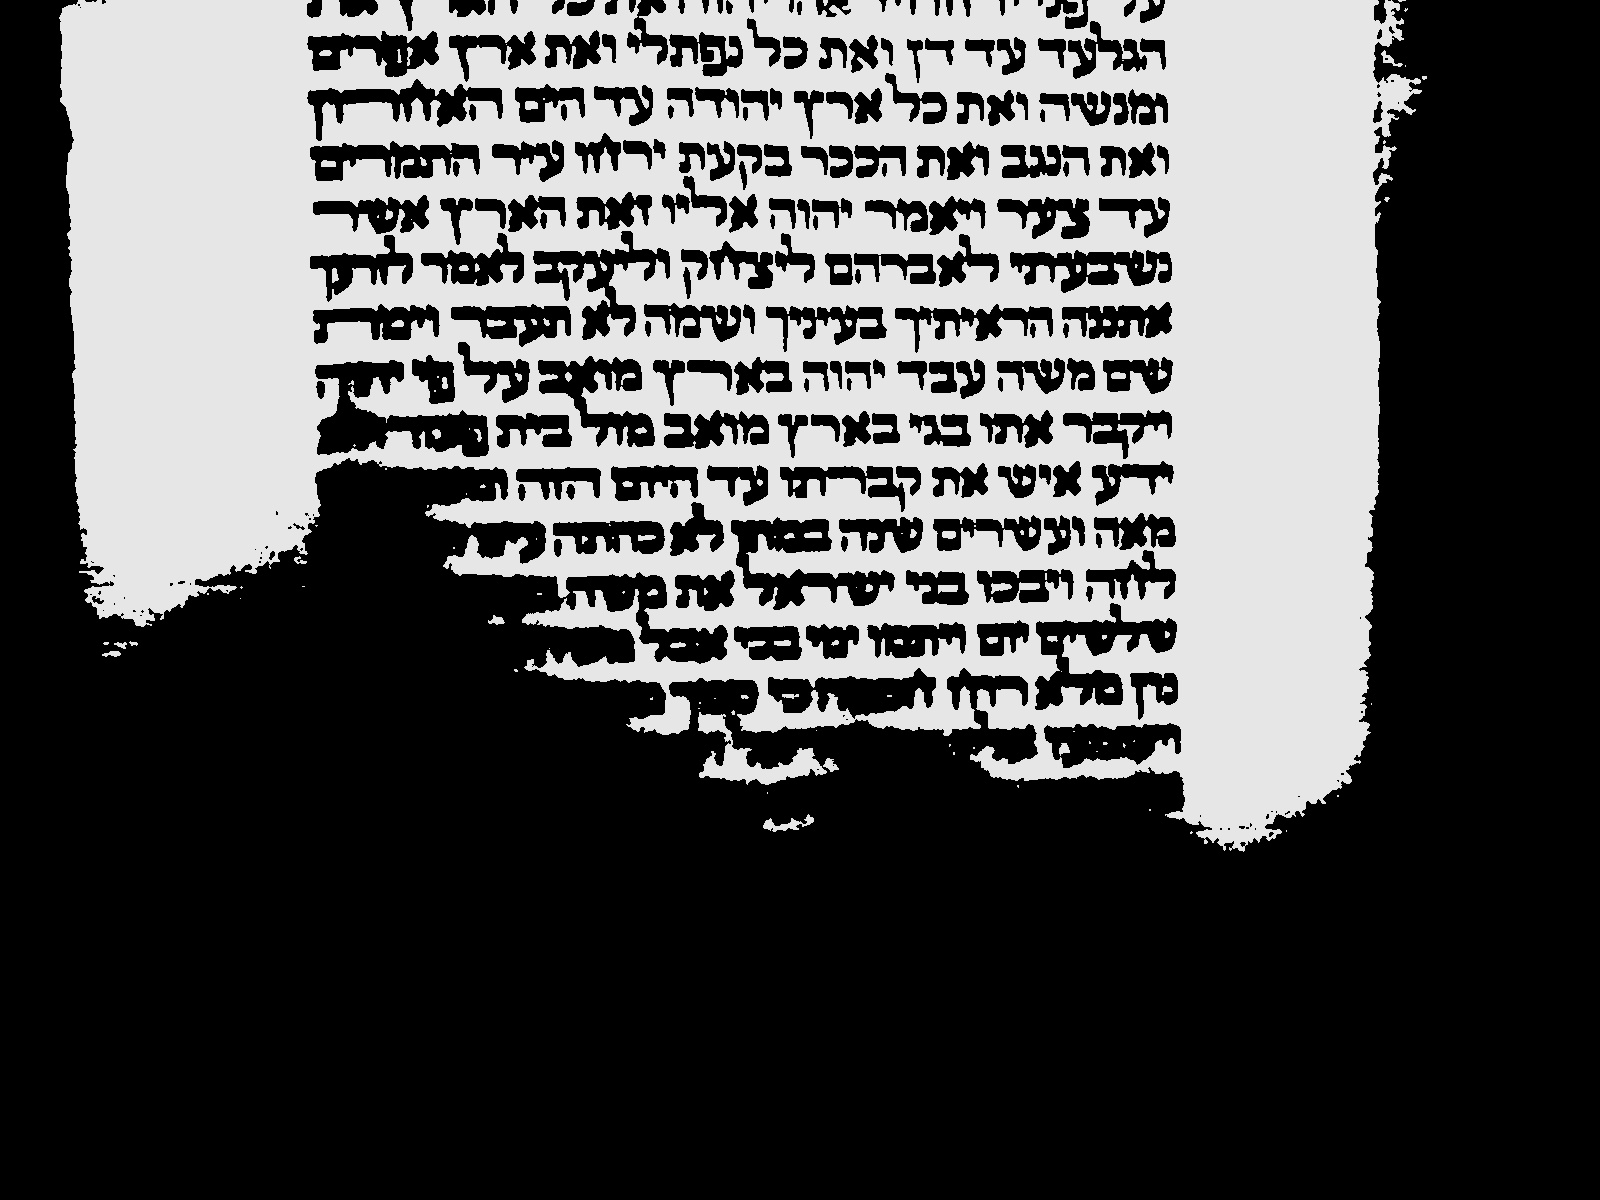 על פני ירחו ויראהו יהוה את כל הארץ את
הגלעד עד דן ואת כל נפתלי ואת ארץ אפרים
ומנשה ואת כל ארץ יהודה עד הים האחרון
ואת הנגב ואת הככר בקעת ירחו עיר התמרים
עד צער ויאמר יהוה אליו זאת הארץ אשר
נשבעתי לאברהם ליצחק וליעקב לאמר לזרעך
אתננה הראיתיך בעיניך ושמה לא תעבר וימת
שם משה עבד יהוה בארץ מואב על פי יהוה
ויקבר אתו בגי בארץ מואב מול בית פעור ולא
ידע איש את קברתו עד היום הזה
מאה ועשרים שנה במתו לא כהתה עינו
לחה ויבכו בני ישראל את משה
שלשים יום ויתמו ימי בכי אבל משה
נון מלא רוח חכמה כי סמך
וישמעו אליו